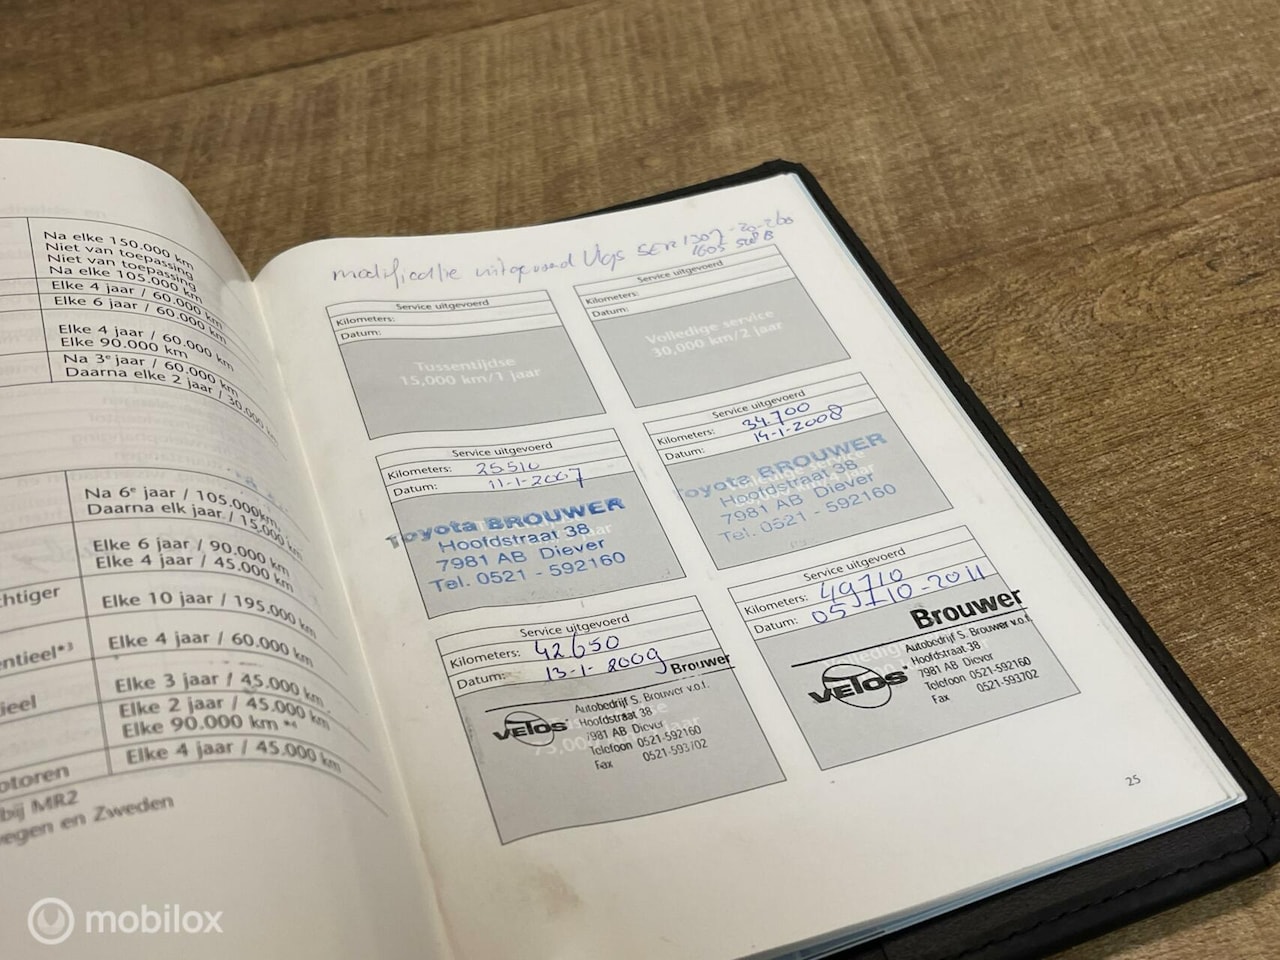 Na elke 150.000 km
Niet van toepassing
Niet van toepassing
Na elke 105.000 km
Elke 4 jaar / 60.000 km
Elke 6 jaar / 60.000 km
Elke 4 jaar / 60.000 km
Elke 90.000 km
Na 3e jaar / 60.000 km
Daarna elke 2 jaar / 30.000 km
Na 6e jaar / 105.000km,
Daarna elk jaar / 15.000 km
Elke 6 jaar / 90.000 km
Elke 4 jaar / 45.000 km
chtiger
Elke 10 jaar / 195.000 km
entieel*3
Elke 4 jaar / 60.000 km
ieel
Elke 3 jaar / 45.000 km
Elke 2 jaar / 45.000 km
Elke 90.000 km *4
otoren
Elke 4 jaar / 45.000 km
bij MR2
wegen en Zweden
modificatie uitgevoerd Vlgs SER
Service uitgevoerd
Kilometers:
Datum:
Tussentijdse
15,000 km/1 jaar
Service uitgevoerd
Kilometers:
Datum:
Volledige service
30,000 km/2 jaar
Service uitgevoerd
Kilometers: 25510
Datum: 11-1-2007
Toyota BROUWER
Hoofdstraat 38
7981 AB Diever
Tel. 0521 - 592160
Service uitgevoerd
Kilometers: 34.700
Datum: 14-1-2008
Toyota BROUWER
Hoofdstraat 38
7981 AB Diever
Tel. 0521 - 592160
Service uitgevoerd
Kilometers: 42650
Datum: 13-1-2009
Brouwer
Autobedrijf S. Brouwer v.o.f.
VELOS
Hoofdstraat 38
7981 AB Diever
Telefoon 0521-592160
Fax 0521-593702
Service uitgevoerd
Kilometers: 49710
Datum: 05-10-2011
Brouwer
Autobedrijf S. Brouwer v.o.f.
VELOS
Hoofdstraat 38
7981 AB Diever
Telefoon 0521-592160
Fax 0521-593702
25
mobilox